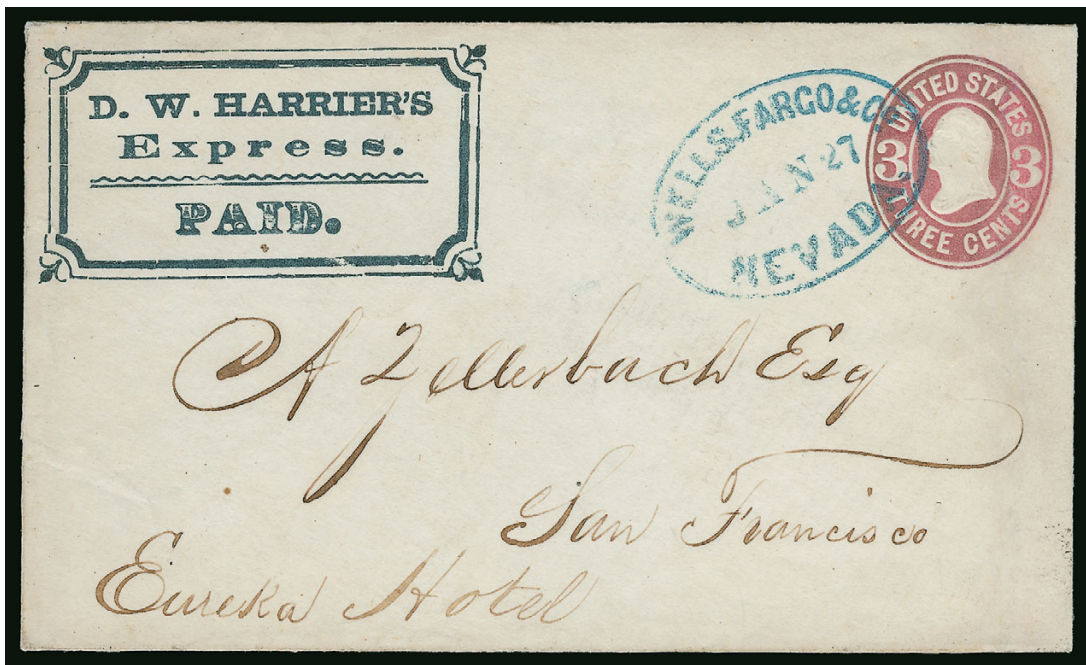 D. W. HARRIER'S
Express.
PAID.
WELLS, FARGO & CO
JAN 27
NEVADA
UNITED STATES
3 3
THREE CENTS
A Zellerbach Esq
San Francisco
Eureka Hotel